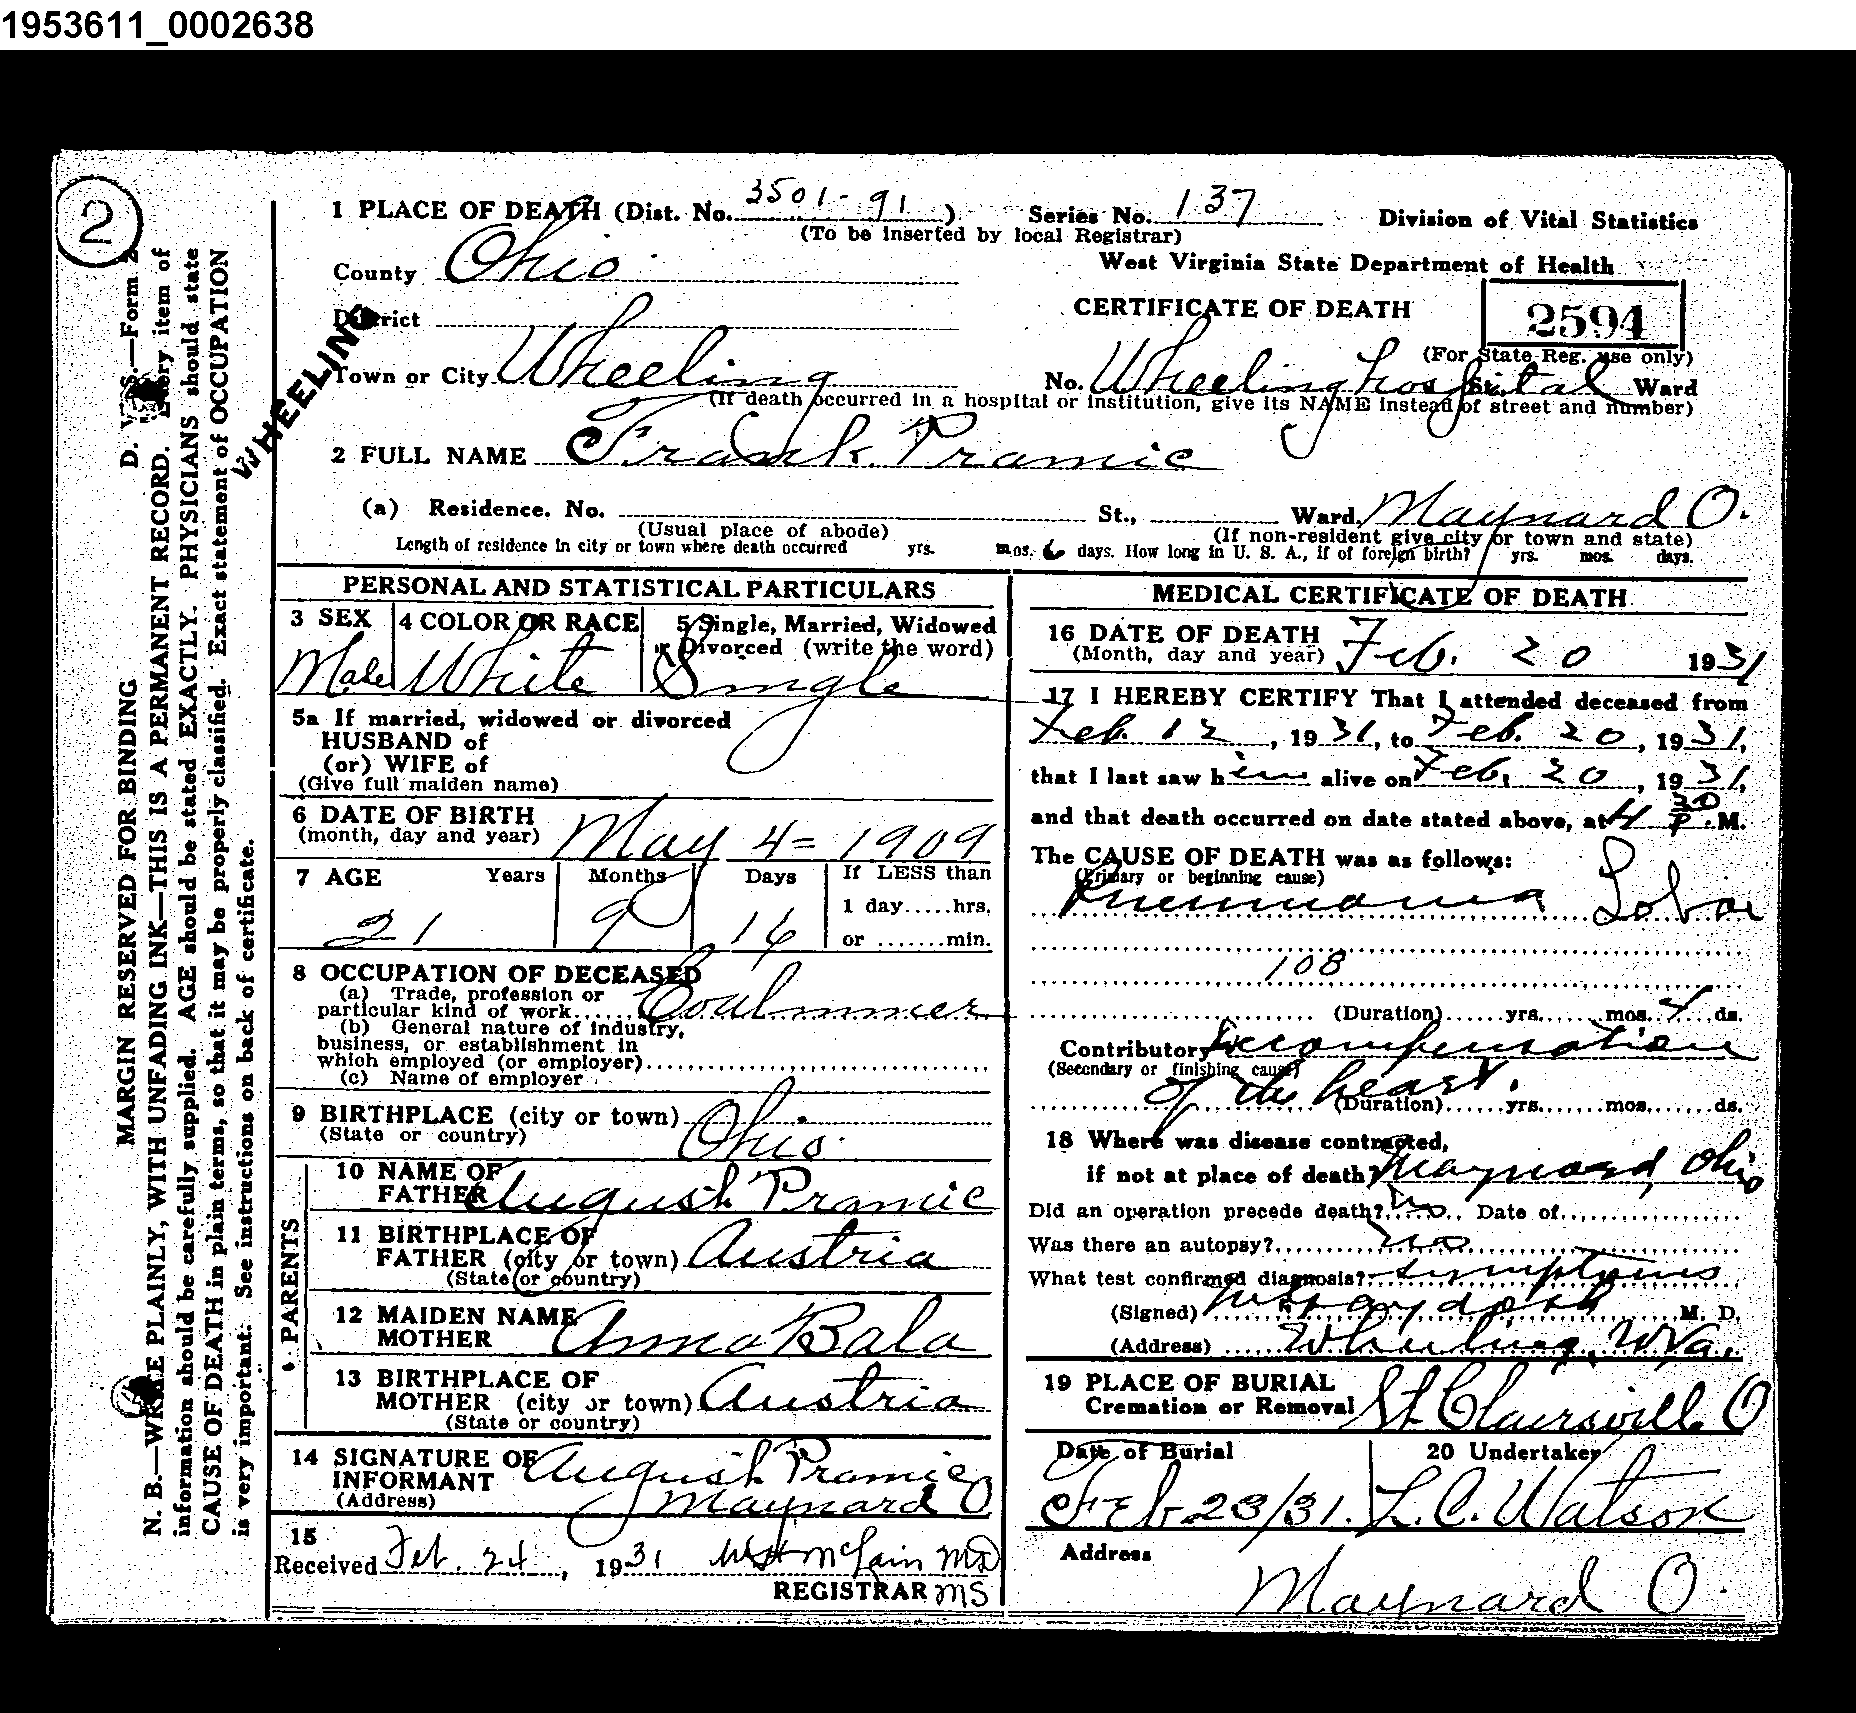 1953611_0002638
2
MARGIN RESERVED FOR BINDING D. V. S.—Form 2
N. B.—WRITE PLAINLY, WITH UNFADING INK—THIS IS A PERMANENT RECORD. Every item of
information should be carefully supplied. AGE should be stated EXACTLY. PHYSICIANS should state
CAUSE OF DEATH in plain terms, so that it may be properly classified. Exact statement of OCCUPATION
is very important. See instructions on back of certificate.
WHEELING
1 PLACE OF DEATH (Dist. No. 3501-91 ) Series No. 137 Division of Vital Statistics
(To be inserted by local Registrar)
County Ohio West Virginia State Department of Health
District CERTIFICATE OF DEATH 2594
(For State Reg. use only)
Town or City Wheeling No. Wheeling hospital St., Ward
(If death occurred in a hospital or institution, give its NAME instead of street and number)
2 FULL NAME Frank Pramic
(a) Residence. No. St., Ward. Maynard O.
(Usual place of abode) (If non-resident give city or town and state)
Length of residence in city or town where death occurred yrs. mos. 6 days. How long in U. S. A., if of foreign birth? yrs. mos. days.
PERSONAL AND STATISTICAL PARTICULARS
3 SEX 4 COLOR OR RACE 5 Single, Married, Widowed
or Divorced (write the word)
Male White Single
5a If married, widowed or divorced
HUSBAND of
(or) WIFE of
(Give full maiden name)
6 DATE OF BIRTH
(month, day and year) May 4= 1909
7 AGE Years Months Days If LESS than
1 day.....hrs.
21 9 16 or .......min.
8 OCCUPATION OF DECEASED
(a) Trade, profession or
particular kind of work...... Coal miner
(b) General nature of industry,
business, or establishment in
which employed (or employer)
(c) Name of employer
9 BIRTHPLACE (city or town)
(State or country) Ohio
PARENTS
10 NAME OF
FATHER August Pramic
11 BIRTHPLACE OF
FATHER (city or town) Austria
(State or country)
12 MAIDEN NAME
MOTHER Anna Bala
13 BIRTHPLACE OF
MOTHER (city or town) Austria
(State or country)
14 SIGNATURE OF
INFORMANT August Pramic
(Address) Maynard O
15
Received Feb. 24, 1931 McLain MD
REGISTRAR MS
MEDICAL CERTIFICATE OF DEATH
16 DATE OF DEATH
(Month, day and year) Feb. 20 1931
17 I HEREBY CERTIFY That I attended deceased from
Feb. 12, 1931, to Feb. 20, 1931,
that I last saw him alive on Feb. 20, 1931,
and that death occurred on date stated above, at 4 30 P.M.
The CAUSE OF DEATH was as follows:
(Primary or beginning cause)
Pneumonia Lobar
108
(Duration)......yrs.......mos.......ds.
Contributory Decompensation
(Secondary or finishing cause)
of the heart.
(Duration)......yrs.......mos.......ds.
18 Where was disease contracted,
if not at place of death? Maynard, Ohio
Did an operation precede death? no Date of
Was there an autopsy? no
What test confirmed diagnosis? symptoms
(Signed) M. D.
(Address) Wheeling, W.Va.
19 PLACE OF BURIAL
Cremation or Removal St. Clairsville O
Date of Burial 20 Undertaker
Feb 23/31. L. C. Watson
Address
Maynard O.